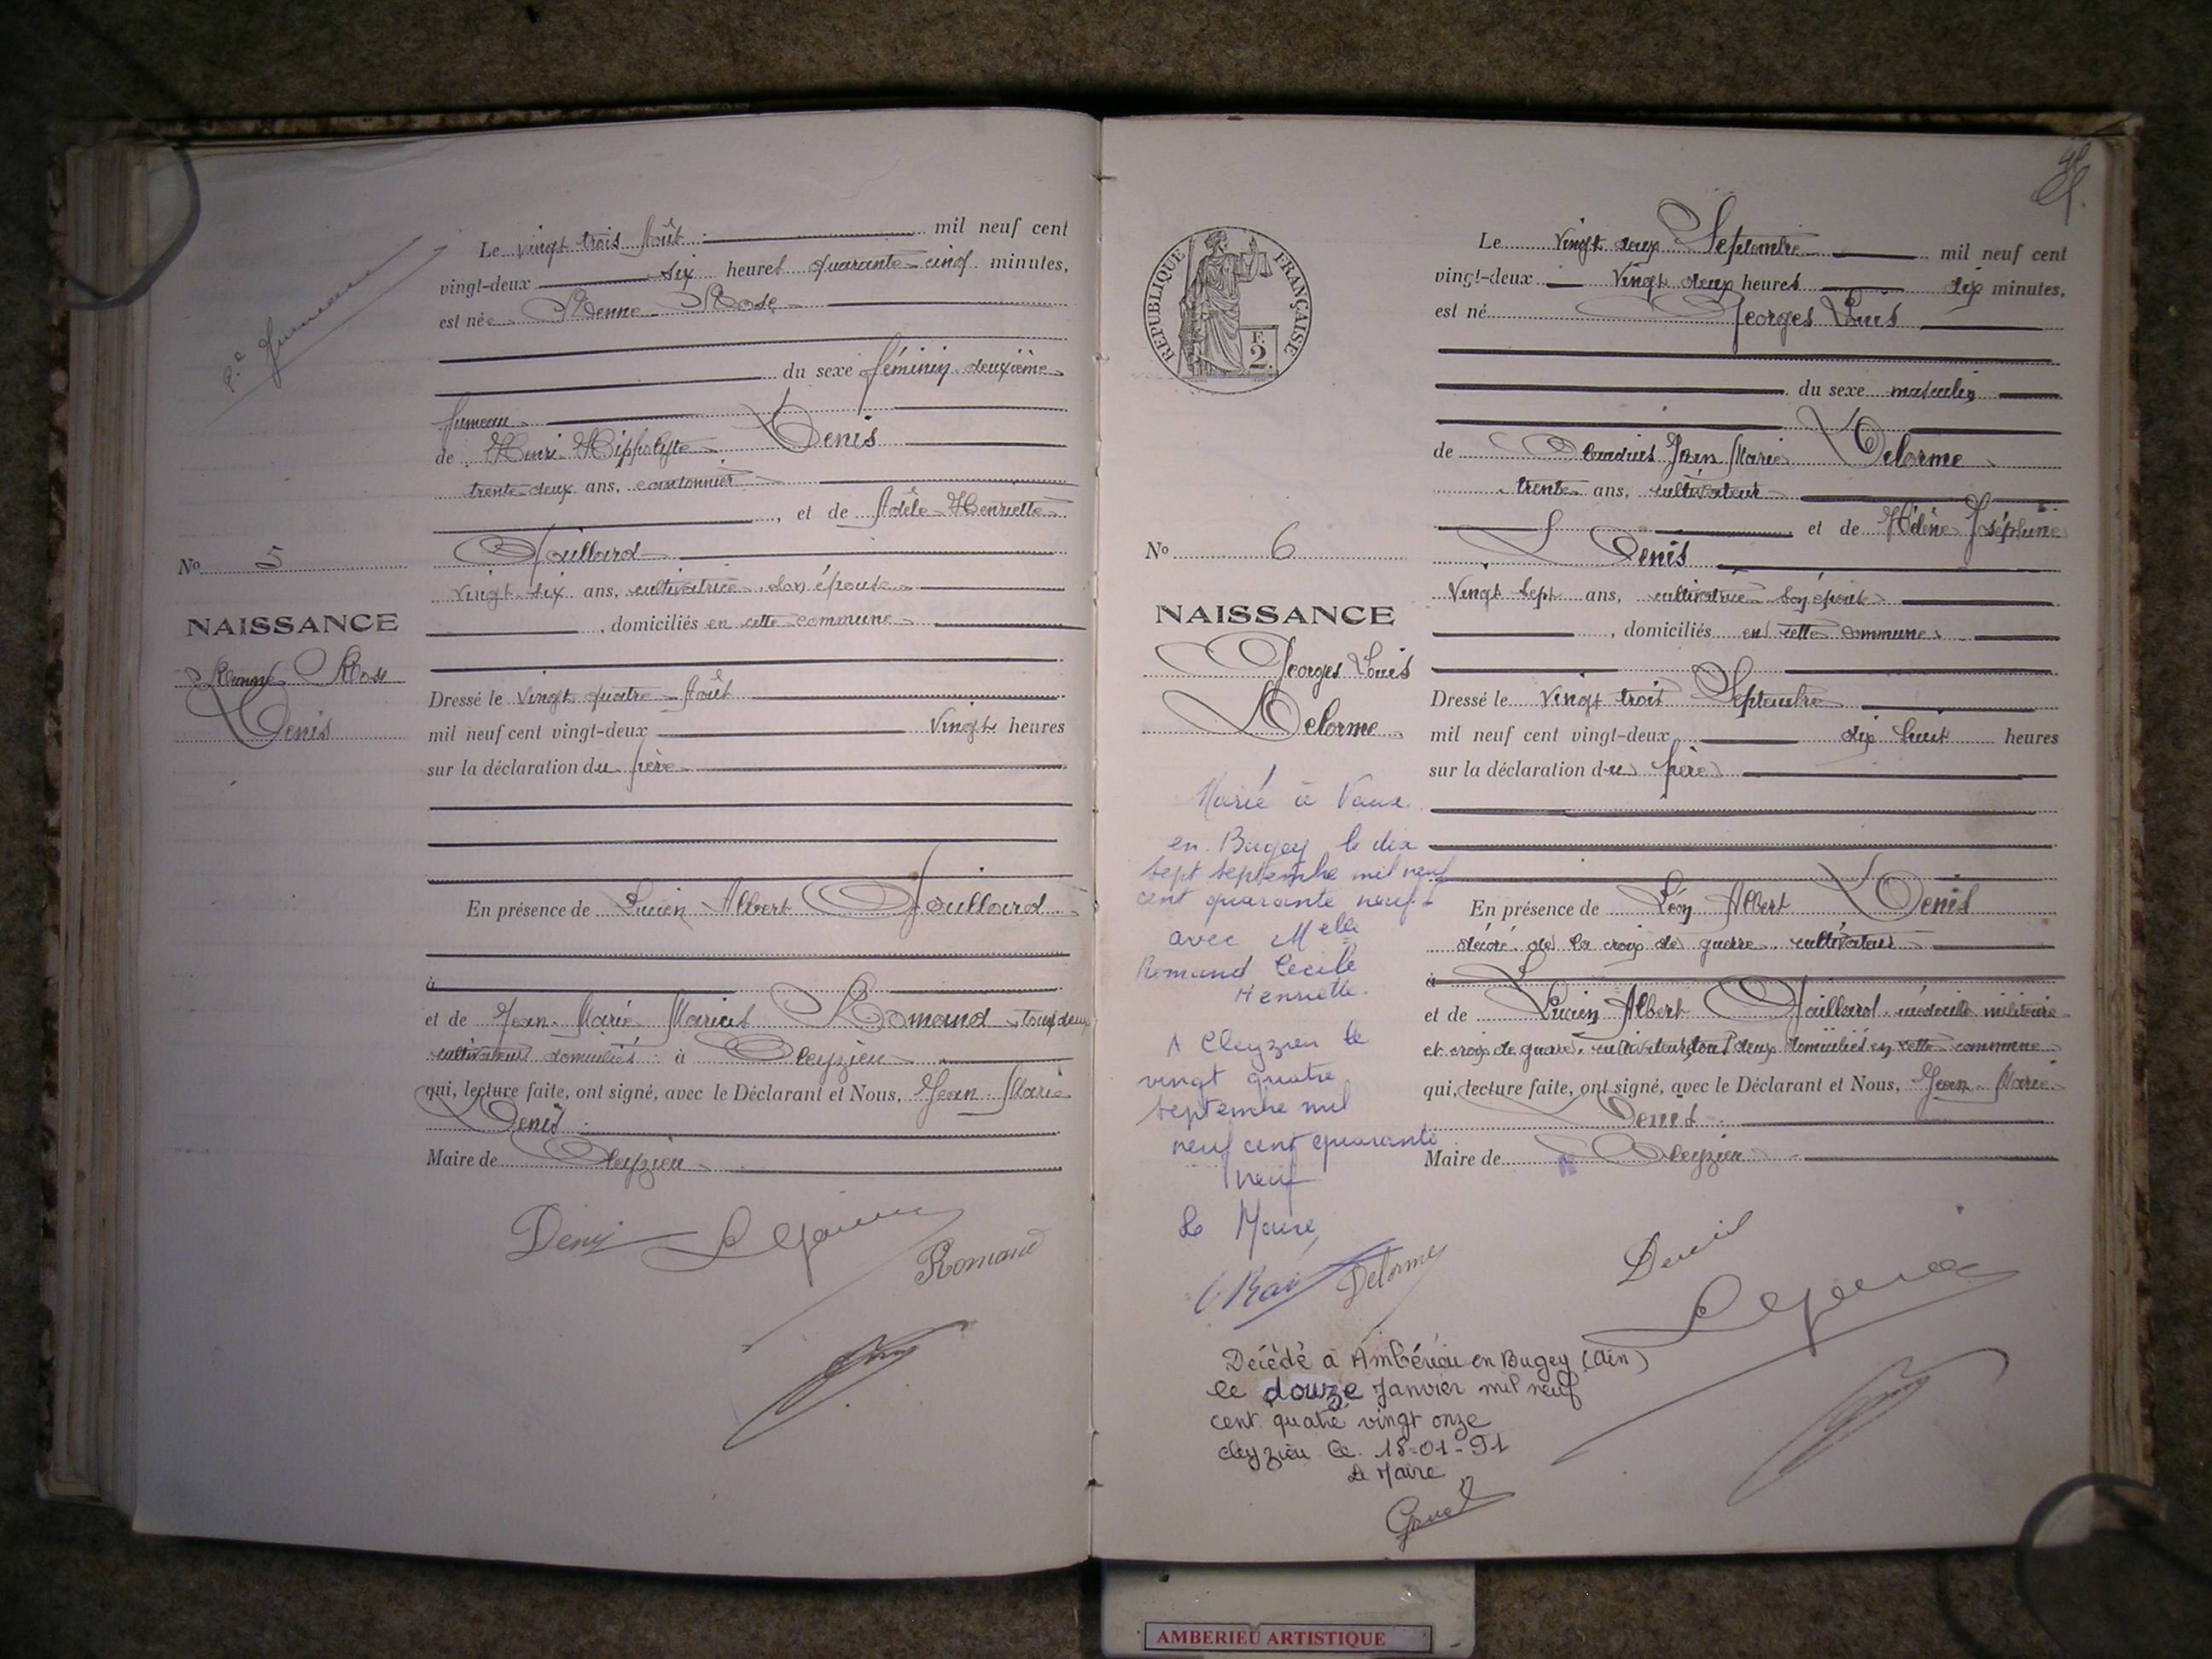 Le vingt trois Août mil neuf cent
vingt-deux six heures quarante-cinq minutes,
est née Renée Rose
du sexe féminin deuxième
jumeau
de Henri Hippolyte Denis
trente-deux ans, cantonnier
, et de Adèle Henriette
Jaillard
vingt-six ans, cultivatrice son épouse
, domiciliés en cette commune
Nº 5
NAISSANCE
Rose
Denis
Dressé le vingt quatre Août
mil neuf cent vingt-deux vingt heures
sur la déclaration du père
En présence de Lucien Albert Jaillard
à
et de Jean-Marie Marius Romand tous deux
cultivateurs domiciliés à Cleyzieu
qui, lecture faite, ont signé, avec le Déclarant et Nous, Jean-Marie
Denis
Maire de Cleyzieu
Denis
Romand
RÉPUBLIQUE FRANÇAISE
F.
2.
Le vingt deux Septembre mil neuf cent
vingt-deux vingt deux heures dix minutes,
est né Georges Louis
du sexe masculin
de Claudius Jean Marie Delorme
trente ans, cultivateur
et de Hélène Joséphine
Denis
Vingt sept ans, cultivatrice son épouse
, domiciliés en cette commune
Nº 6
NAISSANCE
Georges Louis
Delorme
Dressé le vingt trois Septembre
mil neuf cent vingt-deux dix huit heures
sur la déclaration du père
En présence de Léon Albert Denis
décoré de la croix de guerre, cultivateur
à
et de Lucien Albert Jaillard médaille militaire
et croix de guerre, cultivateurs tous deux domiciliés en cette commune
qui, lecture faite, ont signé, avec le Déclarant et Nous, Jean-Marie
Denis
Maire de Cleyzieu
Marié à Vaux
en Bugey le dix
sept septembre mil neuf
cent quarante neuf
avec Melle
Romand Cecile
Henriette.
A Cleyzieu le
vingt quatre
septembre mil
neuf cent quarante
neuf
Le Maire,
Delorme
Denis
Décédé à Ambérieu en Bugey (Ain)
le douze Janvier mil neuf
cent quatre vingt onze
Cleyzieu le 18-01-91
Le Maire
AMBERIEU ARTISTIQUE